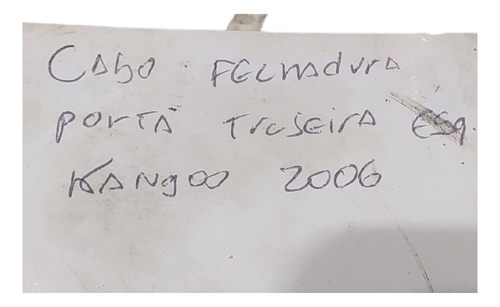 Cabo FECHADURA
PORTA TRASEIRA ESq.
KANgoo 2006